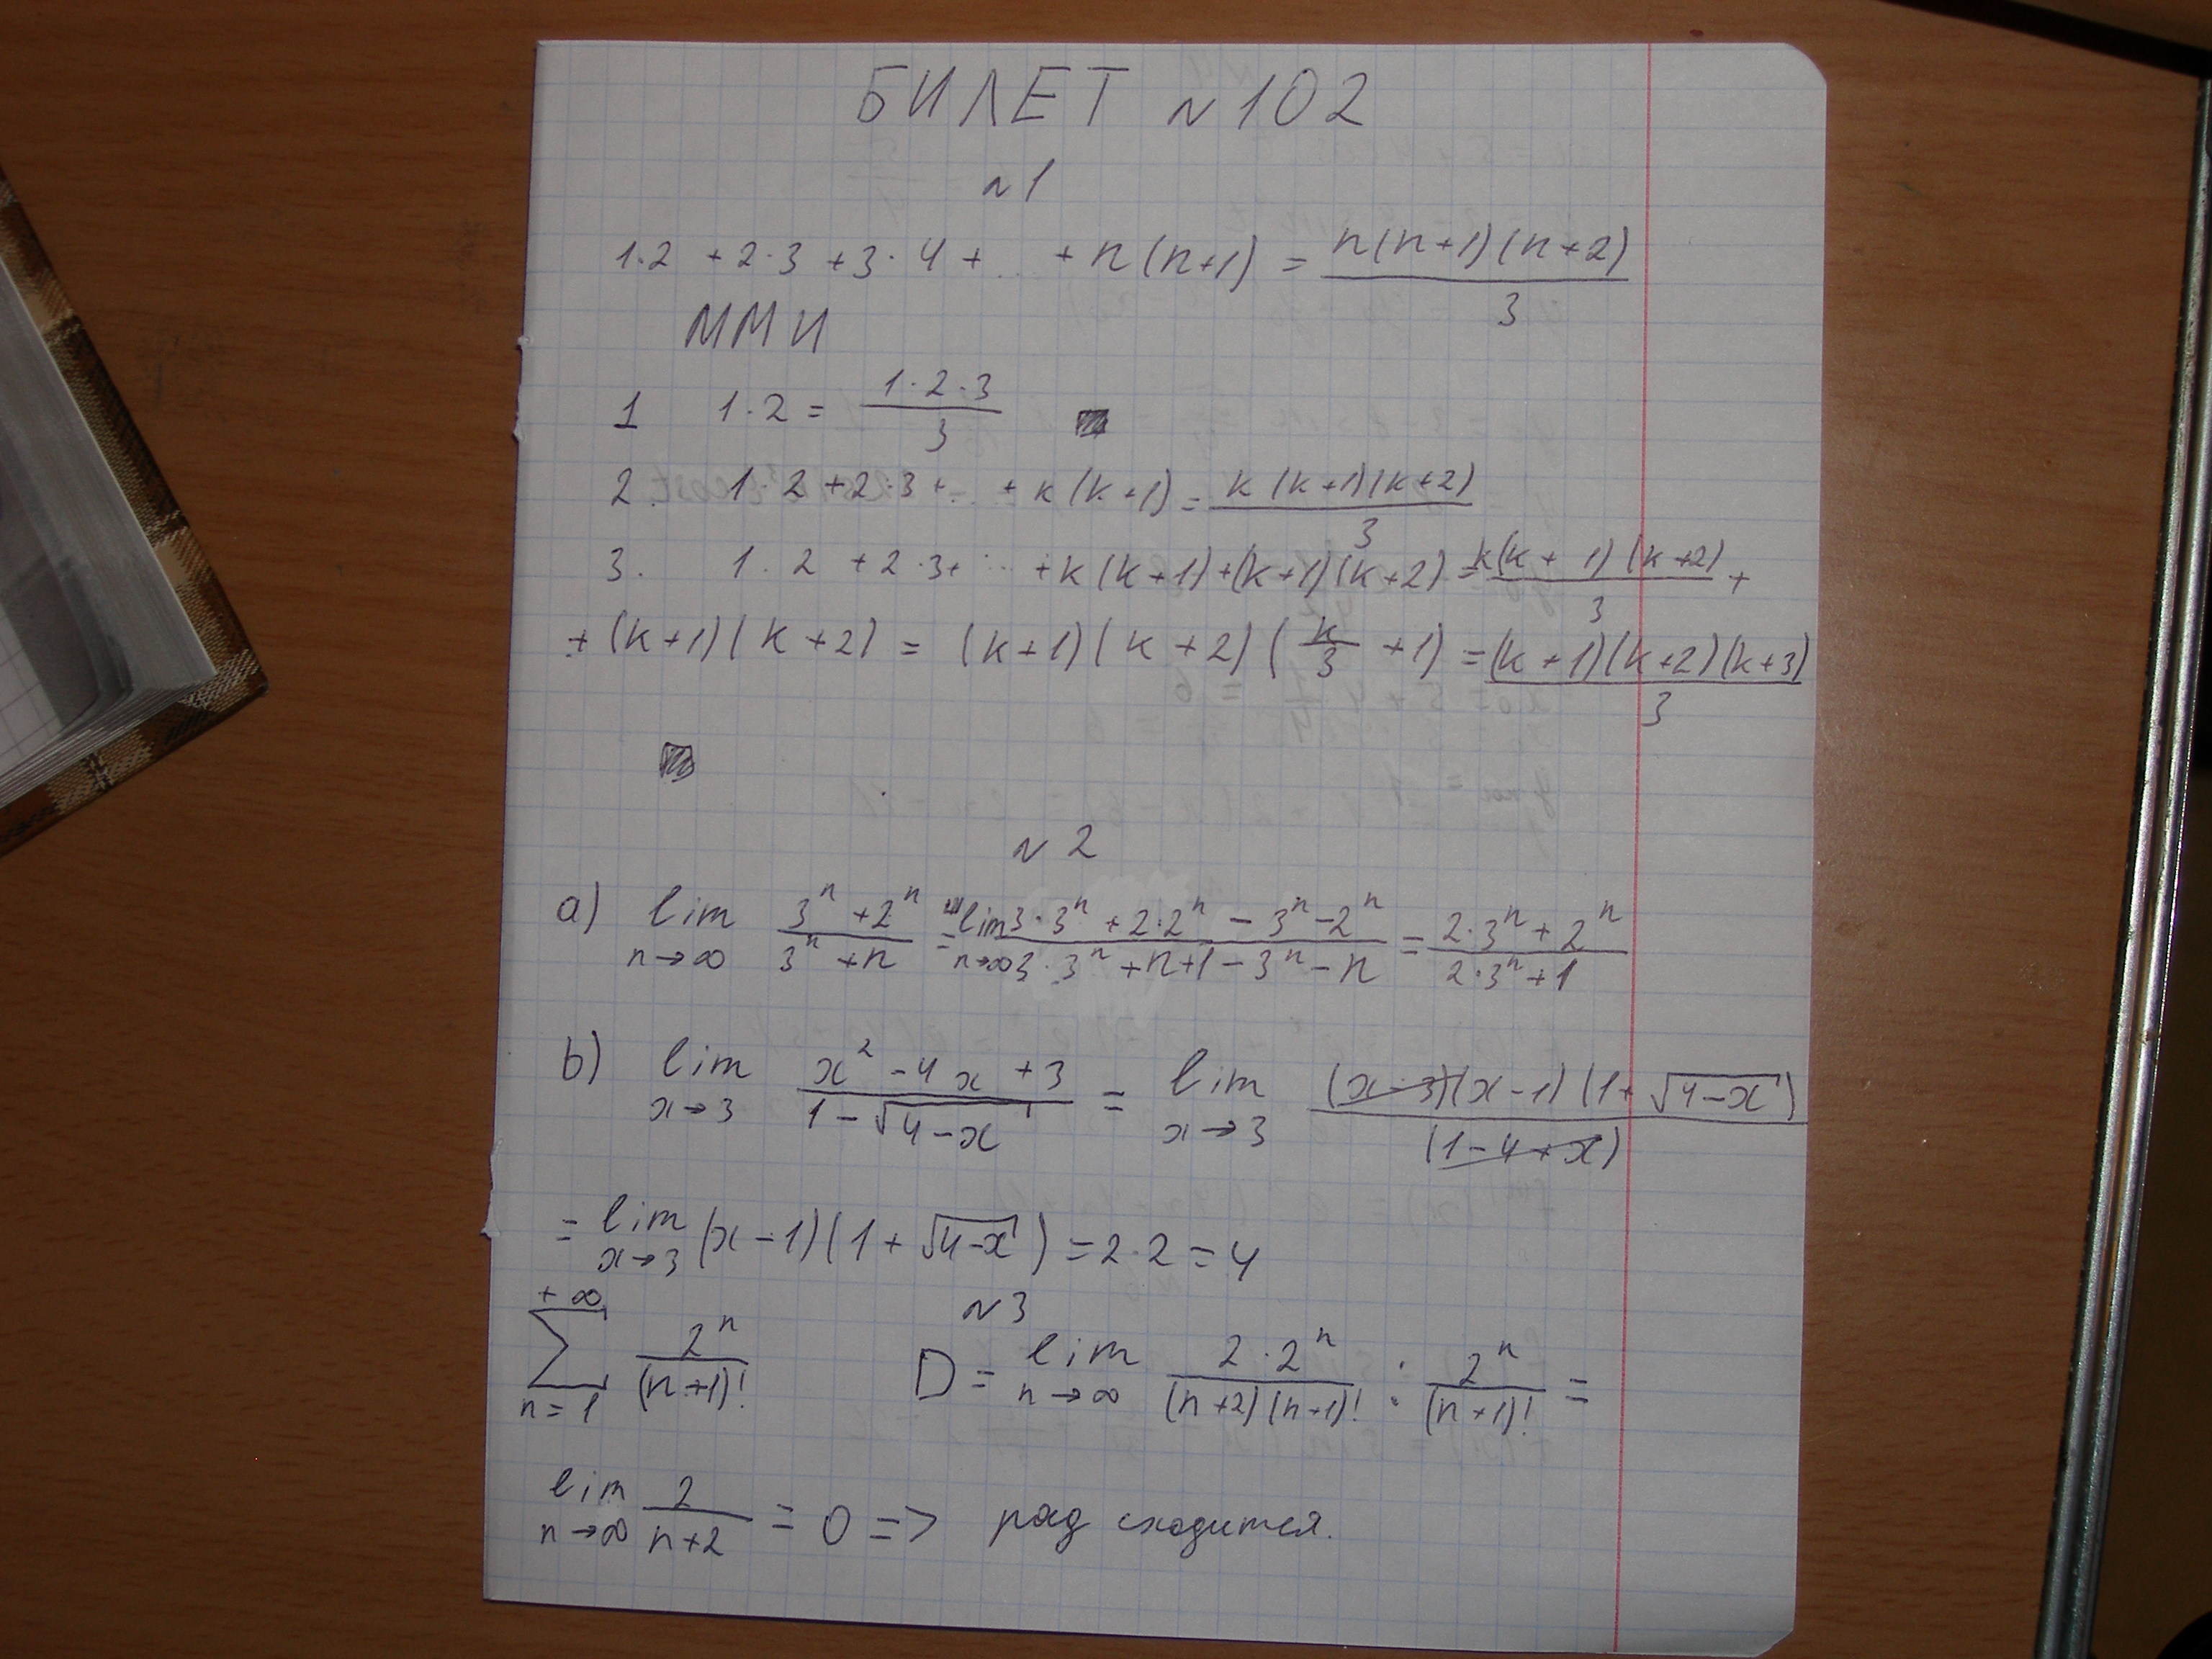 БИЛЕТ N102
N1
1·2 + 2·3 + 3·4 + ... + n(n+1) = n(n+1)(n+2)/3
ММИ
1 1·2 = 1·2·3/3
2. 1·2 + 2·3 + ... + k(k+1) = k(k+1)(k+2)/3
3. 1·2 + 2·3 + ... + k(k+1) + (k+1)(k+2) = k(k+1)(k+2)/3 +
+ (k+1)(k+2) = (k+1)(k+2)(k/3 + 1) = (k+1)(k+2)(k+3)/3
N2
a) lim n→∞ (3^n + 2^n)/(3^n + n) = lim n→∞ (3·3^n + 2·2^n - 3^n - 2^n)/(3·3^n + n+1 - 3^n - n) = (2·3^n + 2^n)/(2·3^n + 1)
b) lim x→3 (x² - 4x + 3)/(1 - √(4-x)) = lim x→3 (x-3)(x-1)(1+√(4-x))/(1-4+x)
= lim x→3 (x-1)(1+√(4-x)) = 2·2 = 4
N3
∑ n=1 +∞ 2^n/(n+1)! D = lim n→∞ 2·2^n/((n+2)(n+1)!) : 2^n/(n+1)! =
lim n→∞ 2/(n+2) = 0 => ряд сходится.